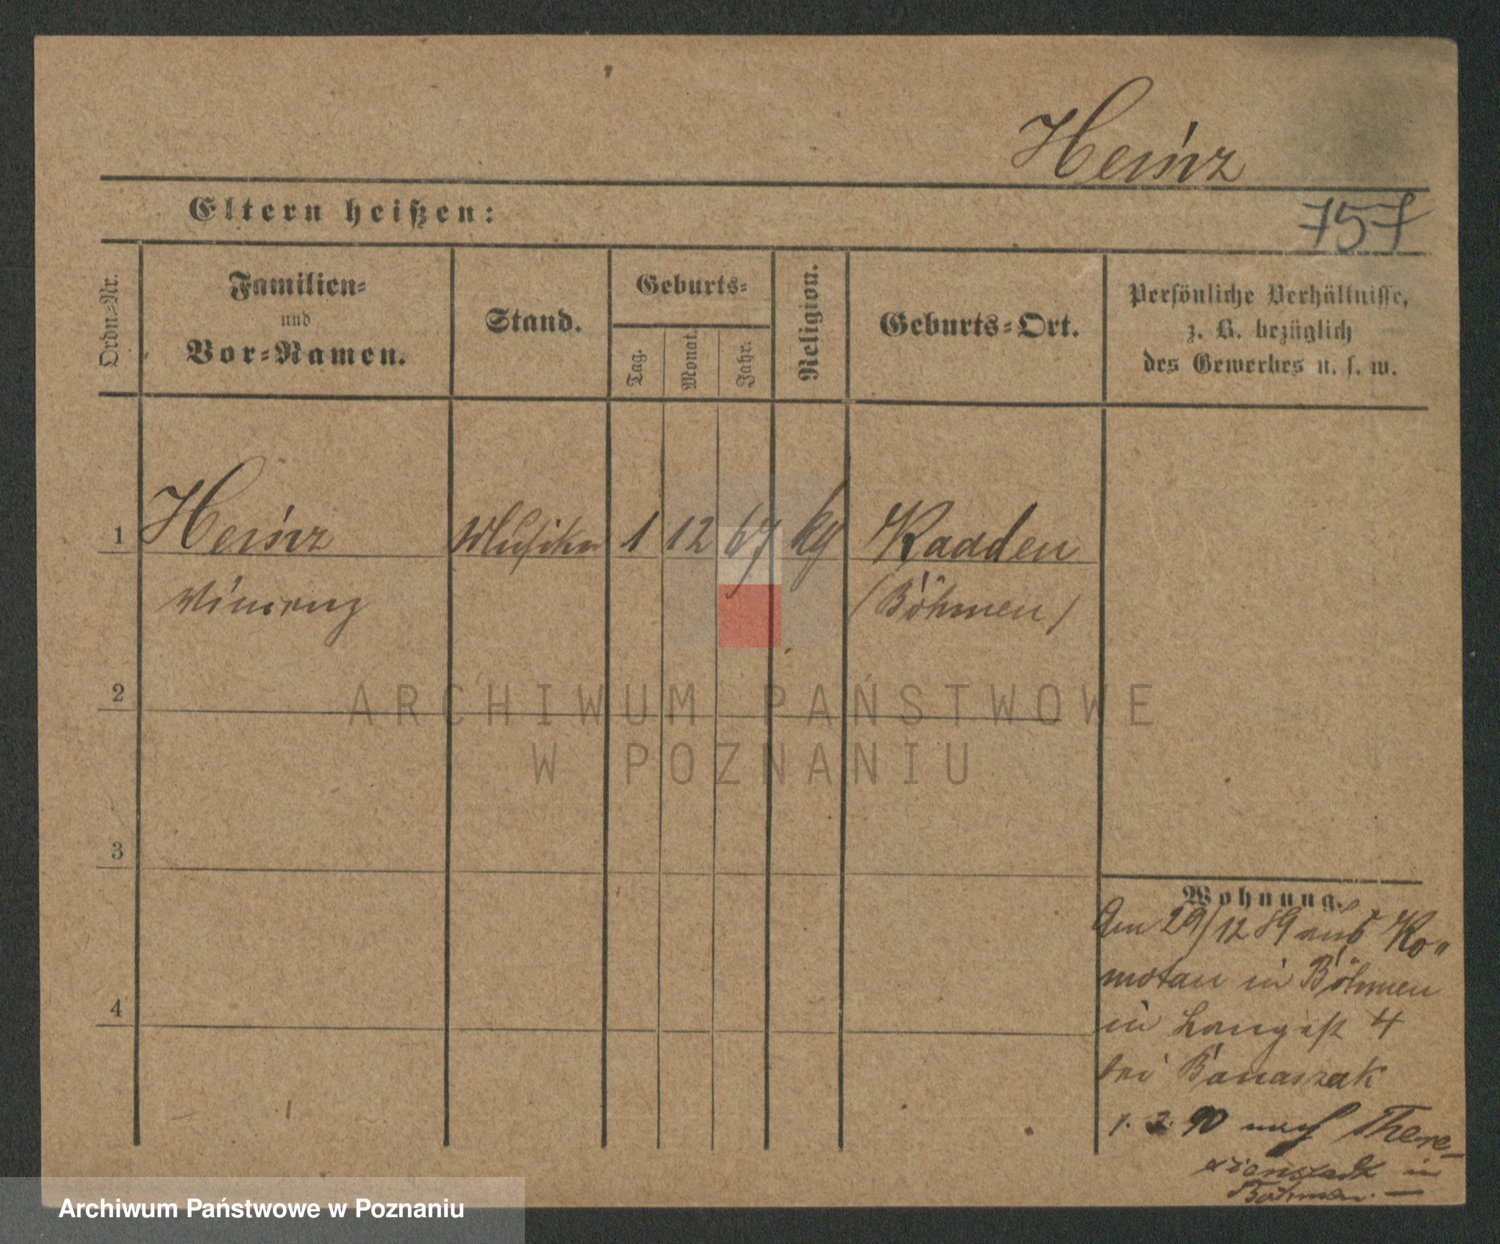 Heinz
Eltern heißen:
757
Ordn.=Nr.
Familien=
und
Vor=Namen.
Stand.
Geburts=
Tag.
Monat.
Jahr.
Religion.
Geburts=Ort.
Persönliche Verhältnisse,
z. B. bezüglich
des Gewerbes u. s. w.
1 Heinz Musiker 1 12 67 kg Kaaden
Vincenz (Böhmen)
2
ARCHIWUM PAŃSTWOWE
W POZNANIU
3
Wohnung.
Am 29/12 89 aus Ko=
motau in Böhmen
in Langestr 4
bei Banaszak
4
1. 2. 90 nach There=
sienstadt in
Böhmen.
Archiwum Państwowe w Poznaniu